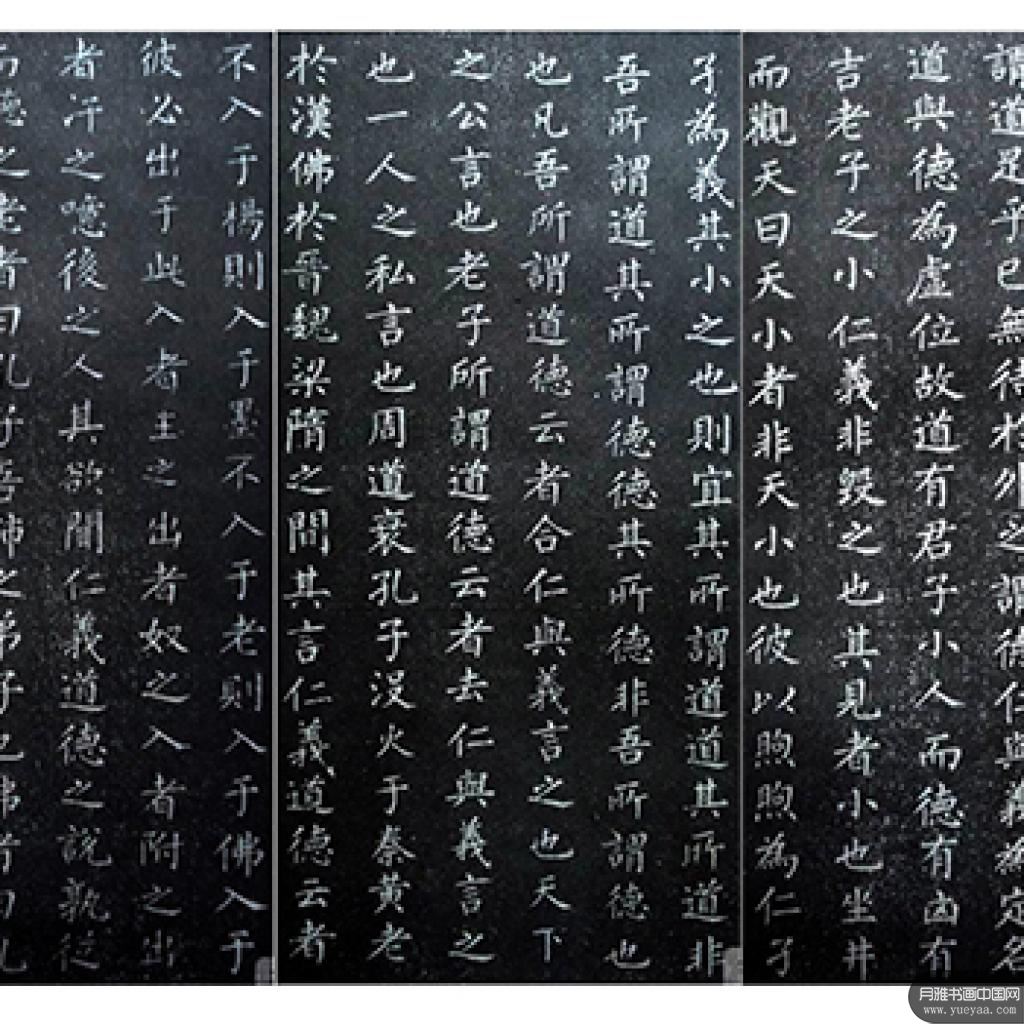 謂道足乎已無待於外之謂德仁與義為定名
道與德為虛位故道有君子小人而德有凶有
吉老子之小仁義非毀之也其見者小也坐井
而觀天曰天小者非天小也彼以煦煦為仁孑
孑為義其小之也則宜其所謂道道其所道非
吾所謂道其所謂德德其所德非吾所謂德也
也凡吾所謂道德云者合仁與義言之也天下
之公言也老子所謂道德云者去仁與義言之
也一人之私言也周道衰孔子沒火于秦黃老
於漢佛於晉魏梁隋之間其言仁義道德云者
不入于楊則入于墨不入于老則入于佛入于
彼必出于此入者主之出者奴之入者附之出
者汙之噫後之人其欲聞仁義道德之說孰從
而聽之老者曰孔子吾師之弟子也佛者曰孔
月雅书画中国网
www.yueyaa.com